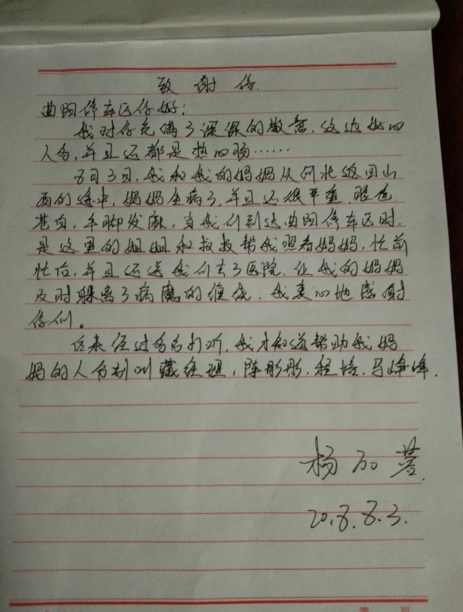 致谢信
曲阿停车区你好：
我对你充满了深深的敬意，这边好心
人多，并且还都是热心肠……
8月3日，我和我的妈妈从何北返回山
西的途中，妈妈生病了，并且还很严重，脸色
苍白，手脚发麻，当我们到达曲阿停车区时，
是这里的姐姐和叔叔帮我照看妈妈，忙前
忙后，并且还送我们去了医院，让我的妈妈
及时躲离了病魔的催残，我衷心地感谢
你们。
后来经过多方打听，我才知道帮助我妈
妈的人分别叫臧经理，陈彤彤，程婧，马峰峰.
杨
8.3.